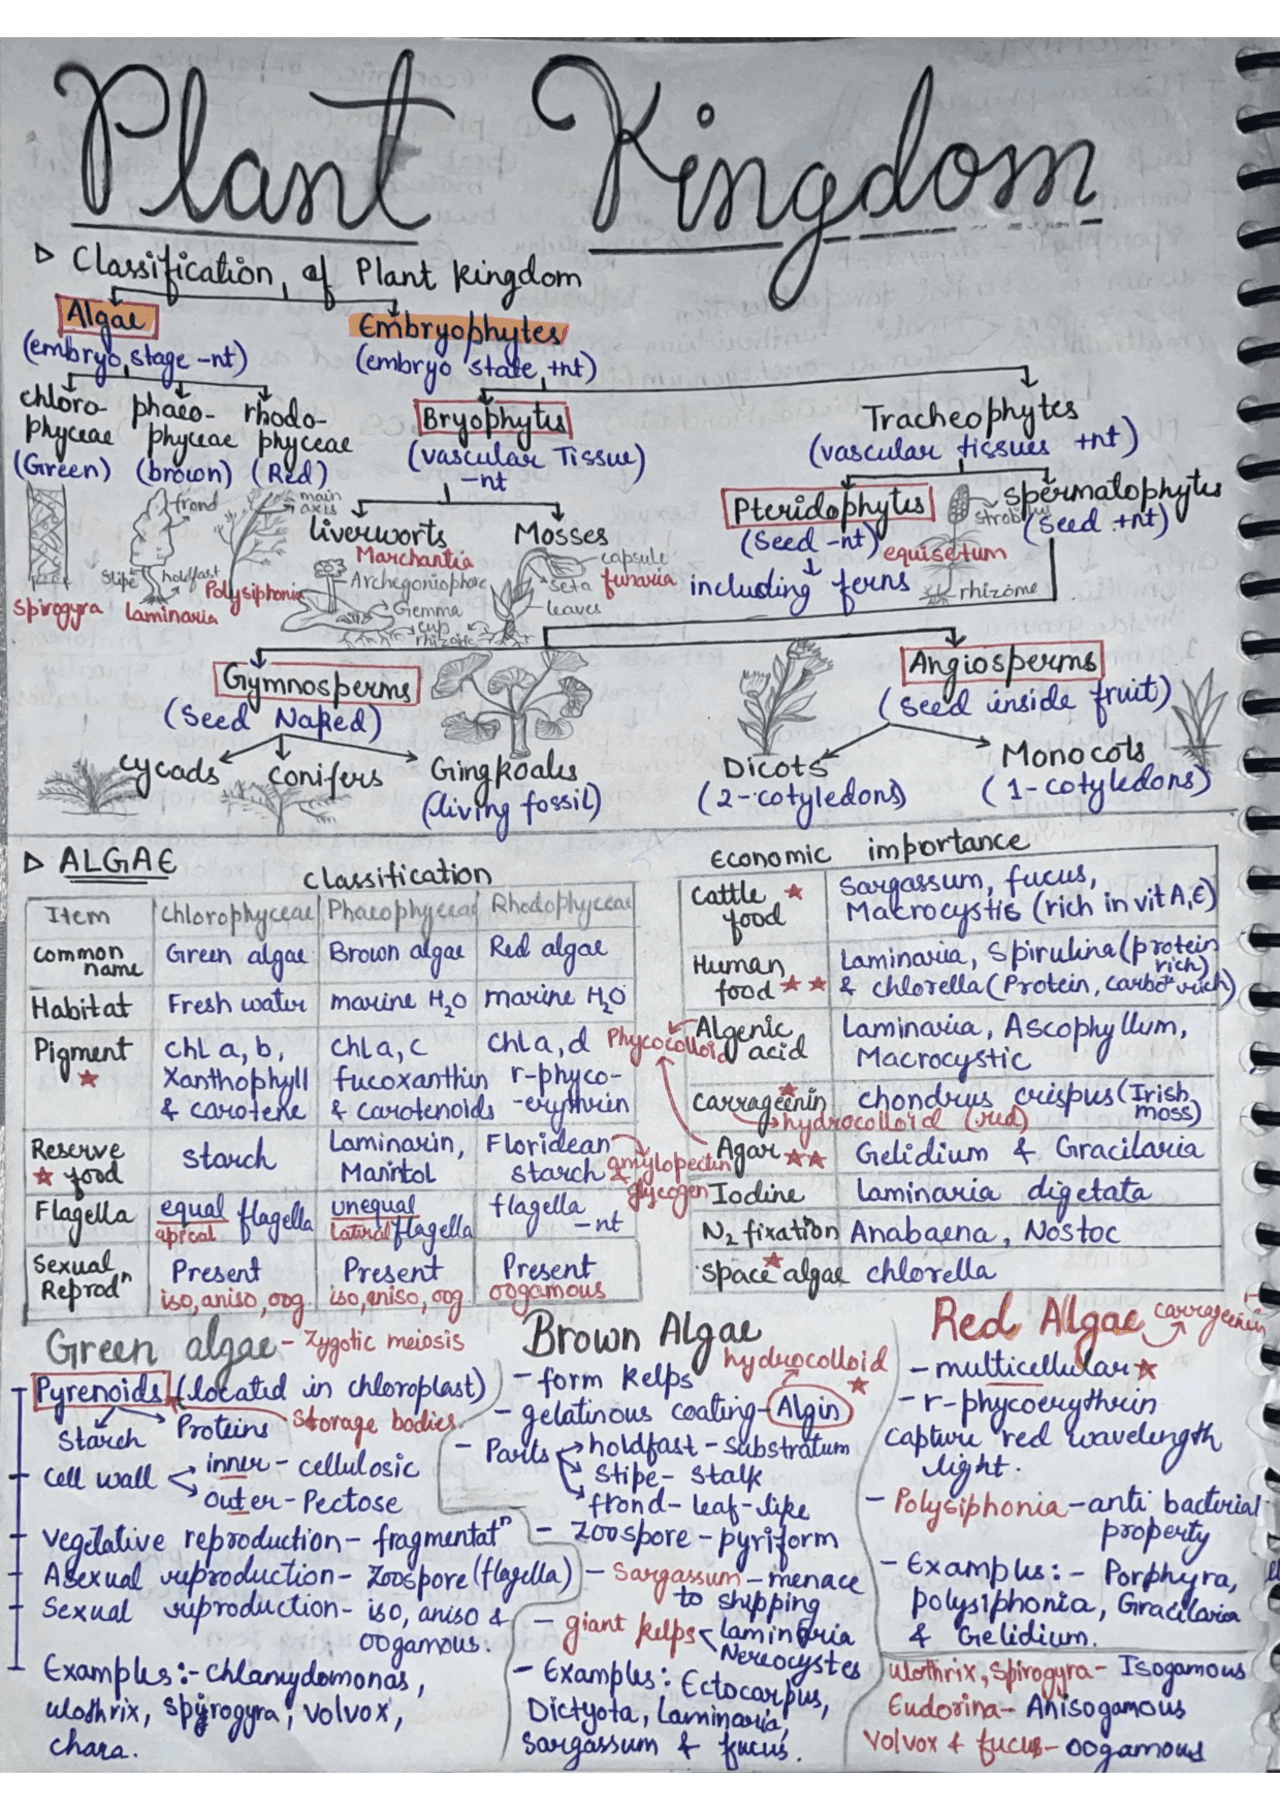 Plant Kingdom
▷ Classification of Plant Kingdom
Algae
Embryophytes
(embryo stage -nt)
(embryo state +nt)
chloro-phyceae
phaeo-phyceae
rhodo-phyceae
(Green)
(brown)
(Red)
Bryophytes
(vascular Tissue)
-nt
Tracheophytes
(vascular tissues +nt)
frond
stipe
holdfast
main axis
Spirogyra
laminaria
Polysiphonia
liverworts
Mosses
Marchantia
Archegoniophore
Gemma cup
rhizoids
capsule
seta
leaves
funaria
Pteridophytes
(Seed -nt)
including ferns
equisetum
strobilus
rhizome
spermatophytes
(Seed +nt)
Gymnosperms
(Seed Naked)
Angiosperms
(Seed inside fruit)
cycads
conifers
Gingkoales
(living fossil)
Dicots
(2-cotyledons)
Monocots
(1-cotyledons)
▷ ALGAE
classification
Item Chlorophyceae Phaeophyceae Rhodophyceae
common name Green algae Brown algae Red algae
Habitat Fresh water marine H₂O marine H₂O
Pigment ★ chl a, b, chl a, c chl a, d
Xanthophyll fucoxanthin r-phyco-
& carotene & carotenoids -erythrin
Reserve starch Laminarin, Floridean
★ food Manitol starch
amylopectin & glycogen
Flagella equal flagella unequal flagella flagella -nt
apical lateral
Sexual Reprodⁿ Present Present Present
iso, aniso, oog iso, aniso, oog oogamous
Economic importance
Cattle food ★ Sargassum, fucus,
Macrocystis (rich in vit A,E)
Human food ★★ Laminaria, Spirulina (protein rich)
& chlorella (Protein, carboⁿ rich)
Phycocolloid
Algenic acid Laminaria, Ascophyllum,
Macrocystic
★ Carrageenin chondrus crispus (Irish moss)
hydrocolloid (red)
Agar ★★ Gelidium & Gracilaria
Iodine Laminaria digetata
N₂ fixation Anabaena, Nostoc
space algae ★ chlorella
Green algae - Zygotic meiosis
Pyrenoids (located in chloroplast)
starch Proteins storage bodies
cell wall inner - cellulosic
outer - Pectose
vegetative reproduction - fragmentatⁿ
Asexual reproduction - Zoospore (flagella)
Sexual reproduction - iso, aniso &
oogamous.
Examples:- chlamydomonas,
ulothrix, spirogyra, volvox,
chara.
Brown Algae
hydrocolloid ★
- form kelps
- gelatinous coating - Algin
- Parts holdfast - substratum
stipe - stalk
frond - leaf-like
- zoospore - pyriform
- Sargassum - menace
to shipping
- giant kelps laminaria
Nereocystes
- Examples: Ectocarpus,
Dictyota, Laminaria,
Sargassum & fucus.
Red Algae carrageenin
- multicellular ★
- r-phycoerythrin
capture red wavelength
light.
- Polysiphonia - anti bacterial
property
- Examples:- Porphyra,
polysiphonia, Gracilaria
& Gelidium.
ulothrix, spirogyra - Isogamous
Eudorina - Anisogamous
Volvox & fucus - oogamous